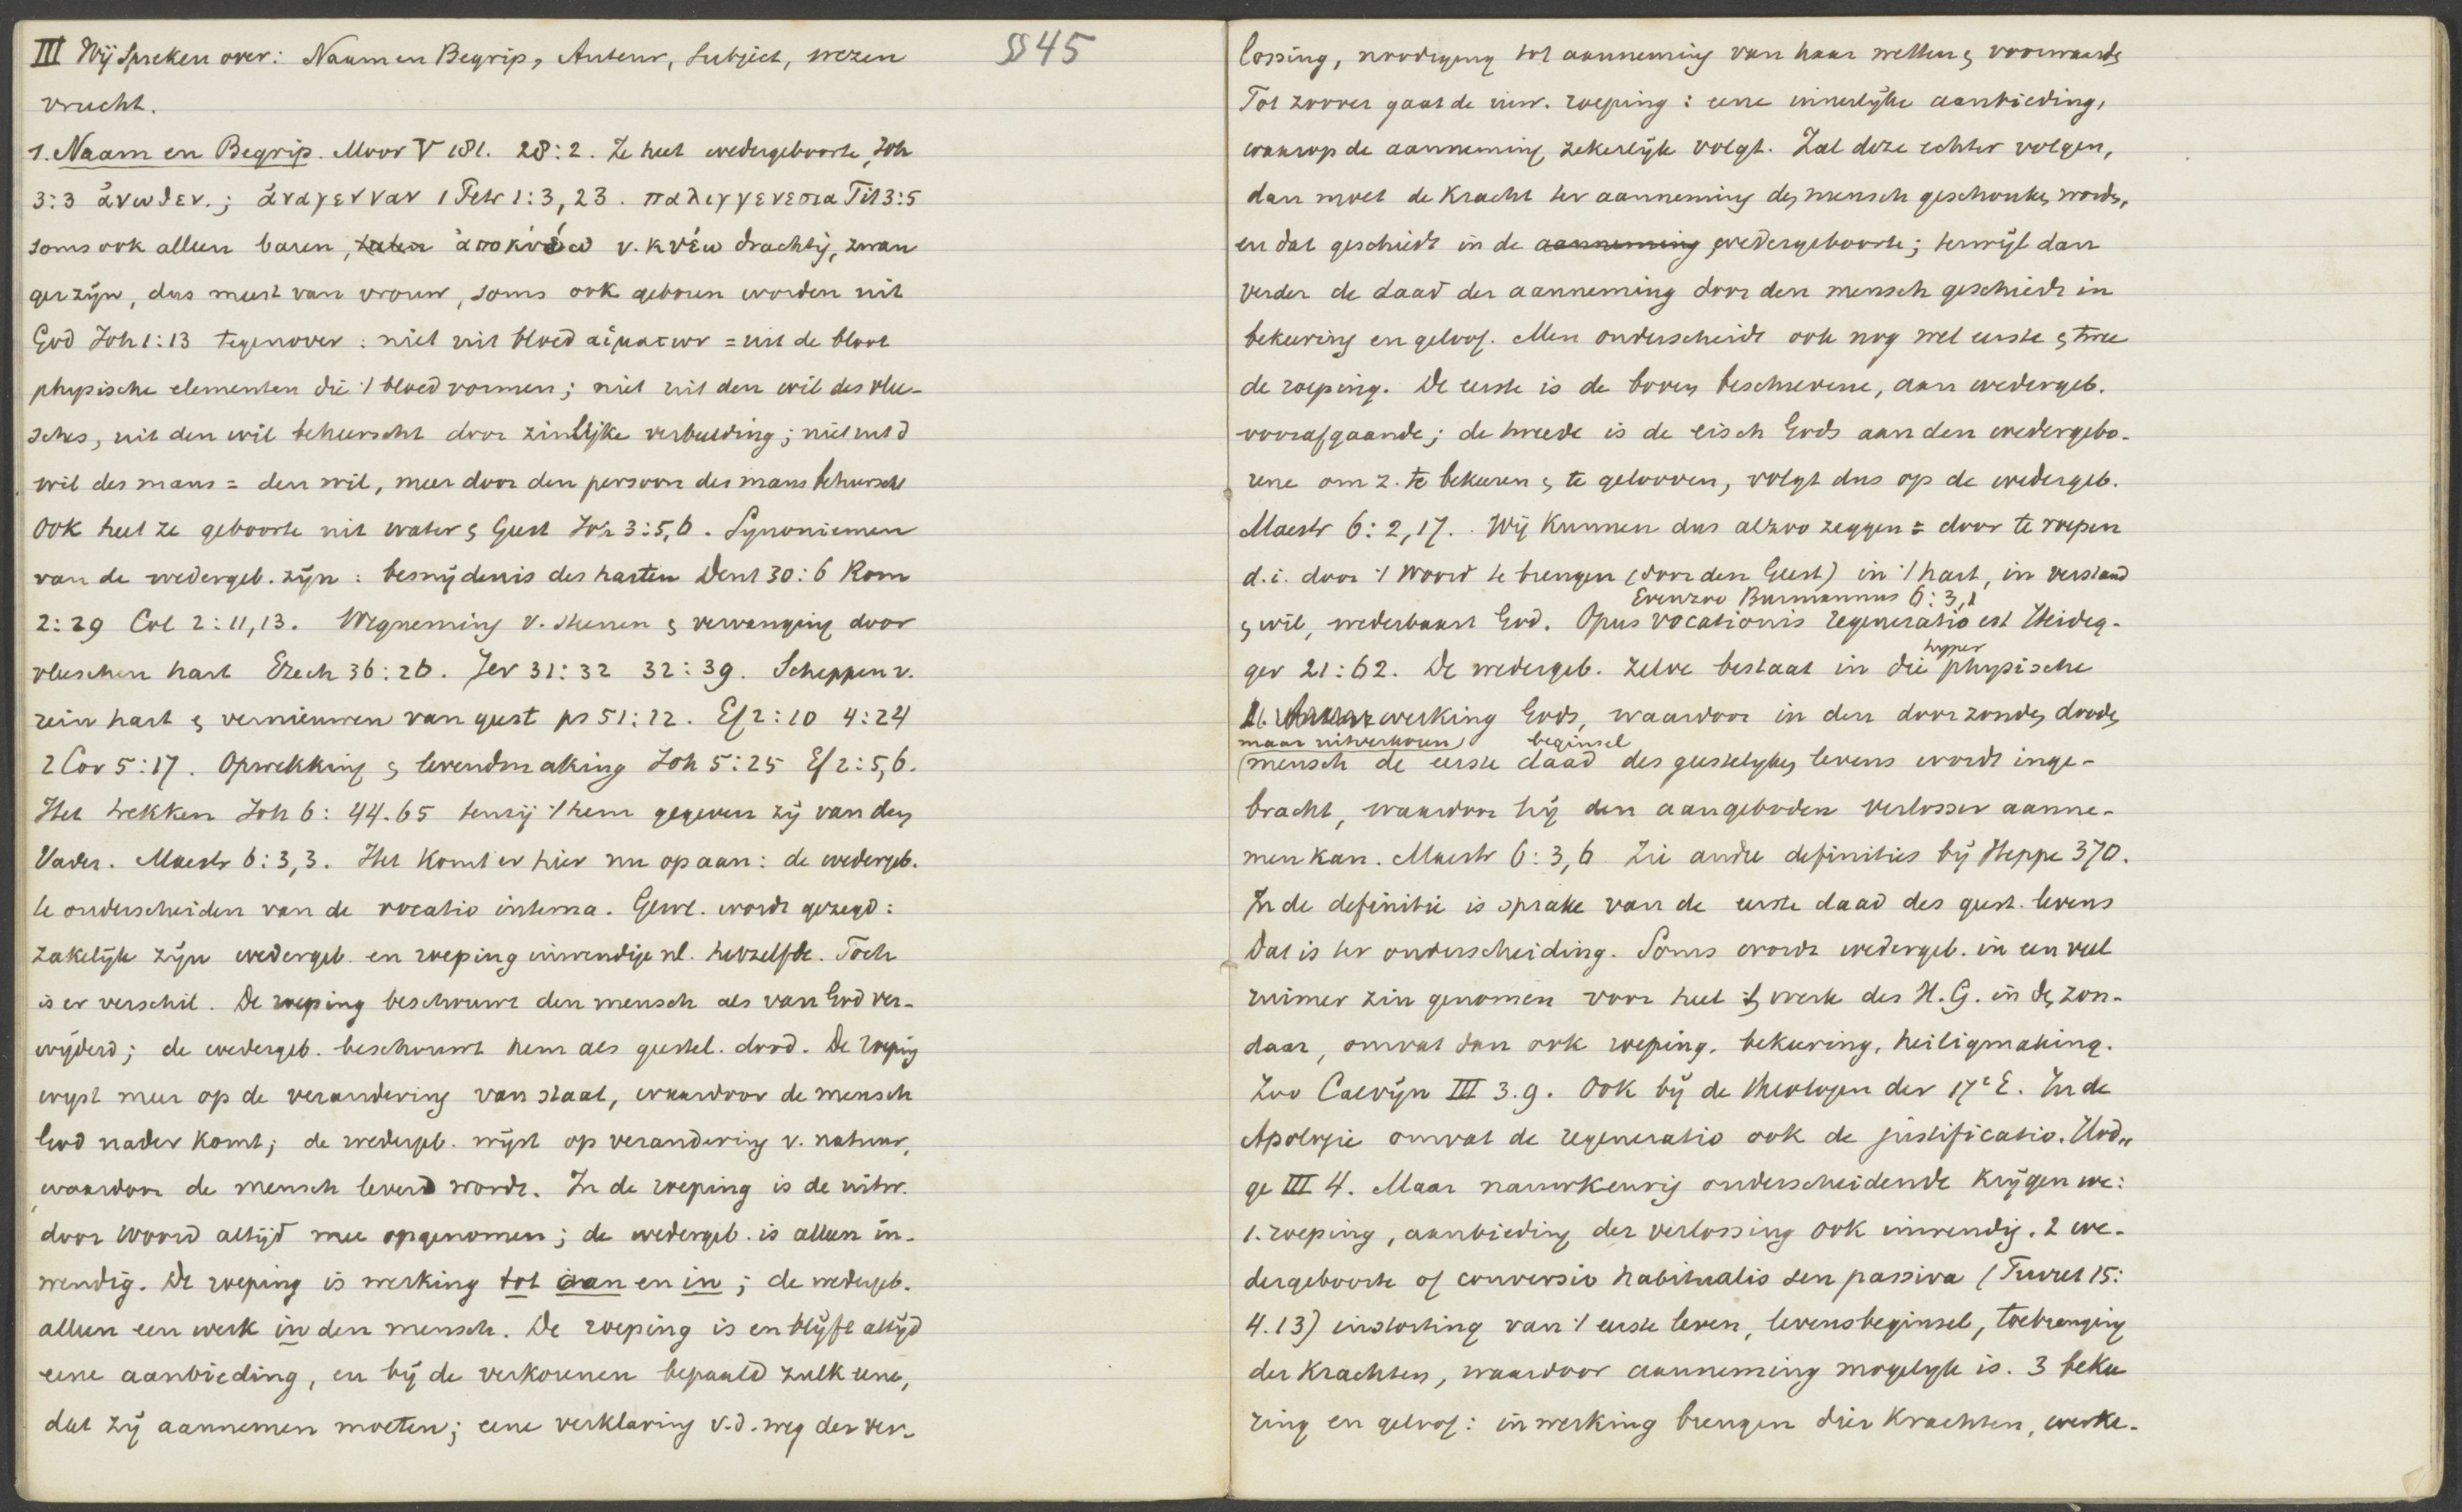 III Wij Spreken over: Naam en Begrip, Auteur, Subject, wezen
vrucht.
§§ 45
1. Naam en Begrip. Moor V 181. 28:2. Ze heet wedergeboorte, Joh
3:3 ἄνωθεν.; ἀναγενναν 1 Petr 1:3, 23. παλιγγενεσια Tit 3:5
soms ook alleen baren, ἀποκύέω v. κυέω drachtig, zwan
ger zijn, dus meest van vrouw, soms ook geboren worden uit
God Joh 1:13 tegenover: niet uit bloed αἱματων = uit de bloot
physische elementen die 't bloed vormen; niet uit den wil des vlee-
sches, uit den wil beheerscht door zinlijke verbeelding; niet uit d
wil des mans = den wil, meer door den persoon des mans beheerscht
Ook heet ze geboorte uit water & Geest Joh 3:5,6. Synoniemen
van de wedergeb. zijn: besnijdenis des harten Deut 30:6 Rom
2:29 Col 2:11,13. Wegneming v. steenen & vervanging door
vleeschen hart Ezech 36:26. Jer 31:32 32:39. Scheppen v.
rein hart & vernieuwen van geest ps 51:12. Ef 2:10 4:24
2 Cor 5:17. Opwekking & levendmaking Joh 5:25 Ef 2:5,6.
Het trekken Joh 6:44.65 tenzij 't hem gegeven zij van den
Vader. Maestr 6:3,3. Het komt er hier nu op aan: de wedergeb.
te onderscheiden van de vocatio interna. Gew. wordt gezegd:
zakelijk zijn wedergeb. en roeping inwendige nl. hetzelfde. Toch
is er verschil. De roeping beschouwt den mensch als van God ver-
wijderd; de wedergeb. beschouwt hem als geestel. dood. De roeping
wijst meer op de verandering van staat, waardoor de mensch
God nader komt; de wedergeb. wijst op verandering v. natuur,
waardoor de mensch levend wordt. In de roeping is de uitw.
door woord altijd mee opgenomen; de wedergeb. is alleen in-
wendig. De roeping is werking tot aan en in; de wedergeb.
alleen een werk in den mensch. De roeping is en blijft altijd
eene aanbieding, en bij de verkorenen bepaald zulk eene,
dat zij aannemen moeten; eene verklaring v.d. weg der ver-
lossing, noodiging tot aanneming van haar wetten & voorwaarden
Tot zoover gaat de inw. roeping: eene innerlijke aanbieding,
waarop de aanneming zekerlijk volgt. Zal deze echter volgen,
dan moet de kracht ter aanneming den mensch geschonken worden,
en dat geschiedt in de aanneming wedergeboorte; terwijl dan
verder de daad der aanneming door den mensch geschiedt in
bekeering en geloof. Men onderscheidt ook nog wel eerste & twee
de roeping. De eerste is de boven beschrevene, aan wedergeb.
voorafgaande; de tweede is de eisch Gods aan den wedergebo-
rene om z. te bekeeren & te gelooven, volgt dus op de wedergeb.
Maestr 6:2,17. Wij kunnen dus alzoo zeggen = door te roepen
d.i. door 't woord te brengen (door den Geest) in 't hart, in verstand
Evenzoo Burmannus 6:3,1
& wil, wederbaart God. Opus vocationis regeneratio est Heideg-
ger 21:62. De wedergeb. zelve bestaat in die hyper physische
werking Gods, waardoor in den door zonden dooden
maar uitverkoren beginsel
(mensch de eerste daad des geestelijken levens wordt inge-
bracht, waardoor hij den aangeboden verlosser aanne-
men kan. Maestr 6:3,6 Zie andre definities bij Heppe 370.
In de definitie is sprake van de eerste daad des geest. levens
Dat is ter onderscheiding. Soms wordt wedergeb. in een veel
ruimer zin genomen voor heel 't werk des H.G. in den zon-
daar, omvat dan ook roeping, bekeering, heiligmaking.
Zoo Calvijn III 3.9. Ook bij de theologen der 17e E. In de
Apologie omvat de regeneratio ook de justificatio. Vod„
ge III 4. Maar nauwkeurig onderscheidende krijgen we:
1. roeping, aanbieding der verlossing ook inwendig. 2 we-
dergeboorte of conversio habitualis seu passiva (Turret 15:
4.13) instorting van 't eerste leven, levensbeginsel, toebrenging
der krachten, waardoor aanneming mogelijk is. 3 bekee
ring en geloof: in werking brengen dier krachten, werke-